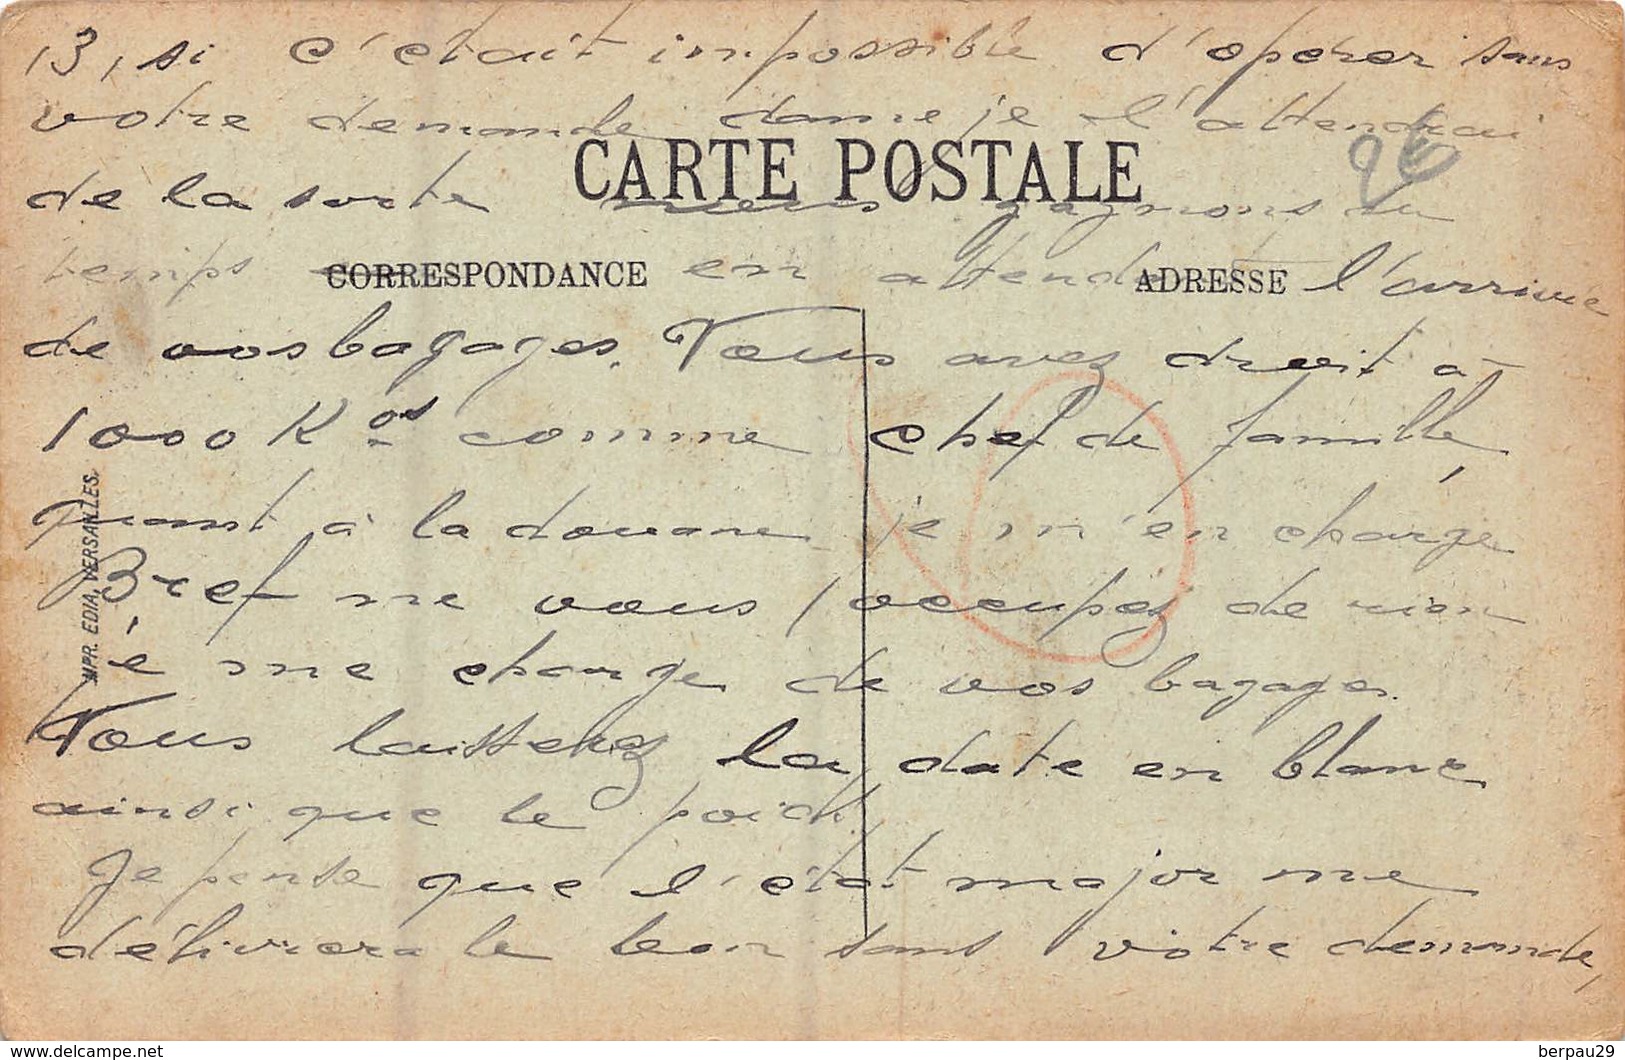 13, si c'était impossible d'opérer sans
votre demande dame je l'attendrai
CARTE POSTALE
de la sorte nous gagnons du
temps en attendant l'arrivée
CORRESPONDANCE
ADRESSE
de vos bagages. Vous avez droit à
1000 Kos comme chef de famille,
quant à la douane je m'en charge
Bref ne vous occupez de rien
je me charge de vos bagages.
Vous laisserez la date en blanc
ainsi que le poids
Je pense que l'état major me
délivrera le bon sans votre demande,
IMPR. EDIA, VERSAILLES.
berpau29